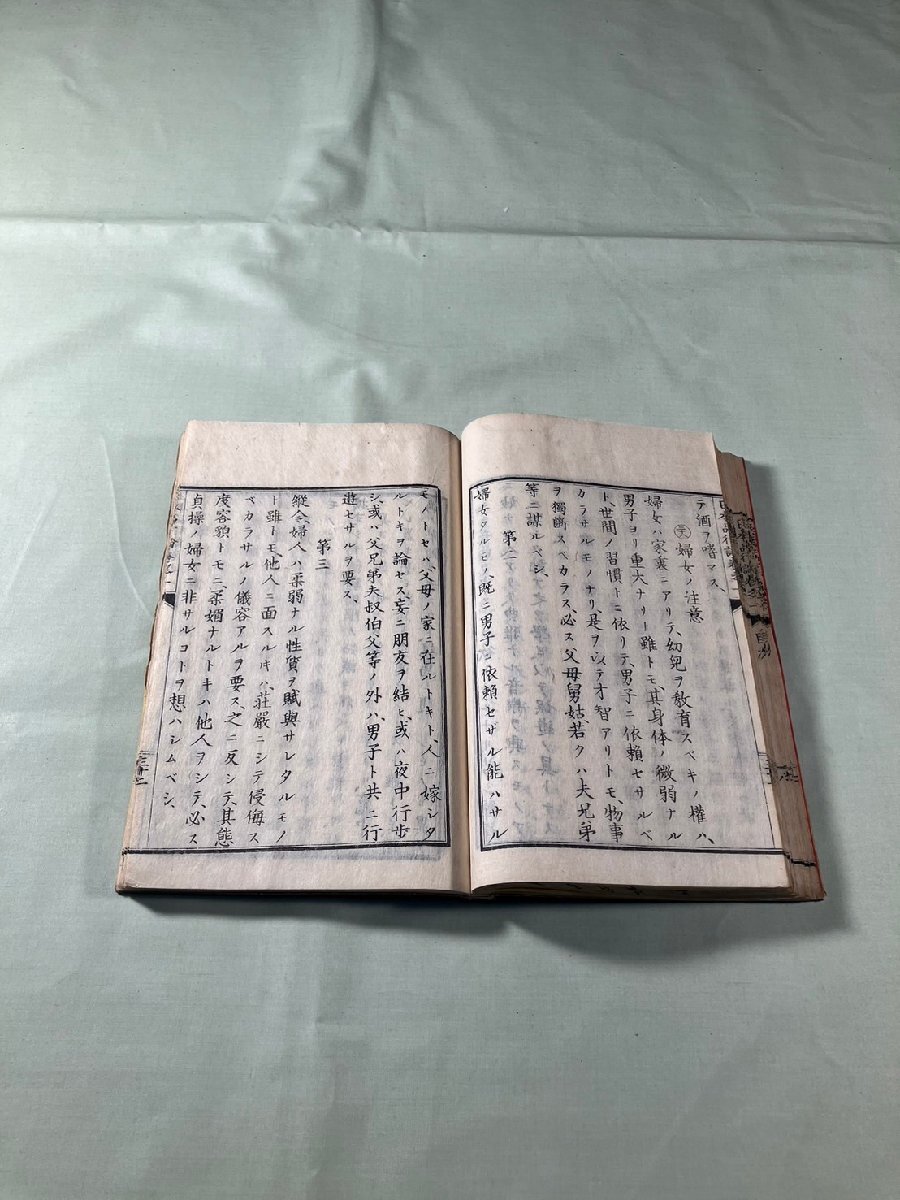 テ酒ヲ嗜マス、
㊝婦女ノ注意
婦女ハ家裏ニアリテ、幼兒ヲ教育スベキノ權ハ、
男子ヨリ重大ナリト雖トモ、其身体ノ微弱ナル
ト世間ノ習慣トニ依リテ、男子ニ依頼セサルベ
カラサルモノナリ是ヲ以テ才智アリトモ、物事
ヲ獨斷スベカラス、必ス父母舅姑若クハ夫兄弟
等ニ謀ルベシ、
第二
婦女タルモノハ、既ニ男子ニ依頼セザル能ハサル
モノトセハ、父母ノ家ニ在ルトキト、人ニ嫁シタ
ルトキヲ論セス、妄ニ朋友ヲ結ヒ、或ハ夜中行歩
シ、或ハ父兄弟夫叔伯父等ノ外ハ、男子ト共ニ行
遊セサルヲ要ス、
第三
縦令婦人ハ柔弱ナル性質ヲ賦與サレタルモノ
ト雖トモ、他人ニ面スルキハ、荘嚴ニシテ侵侮ス
ベカラサルノ儀容アルヲ要ス、之ニ反シテ、其態
度容貌トモニ、柔媚ナルトキハ他人ヲシテ、必ス
貞操ノ婦女ニ非サルコトヲ想ハシムベシ、